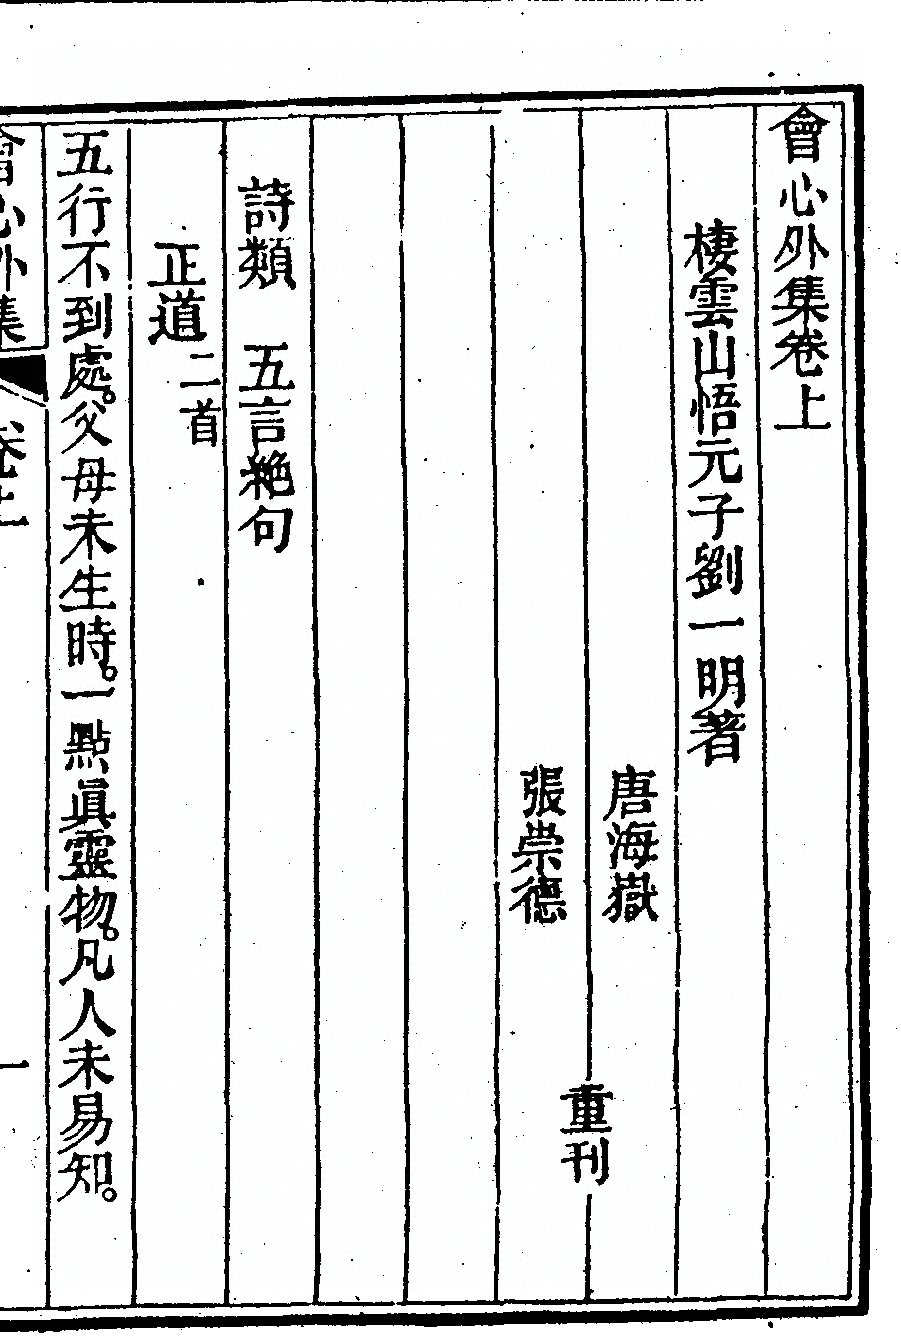 會心外集卷上
棲雲山悟元子劉一明著
唐海嶽
張崇德
重刊
詩類　五言絶句
正道二首
五行不到處。父母未生時。一點眞靈物。凡人未易知。
會心外集　卷上　一